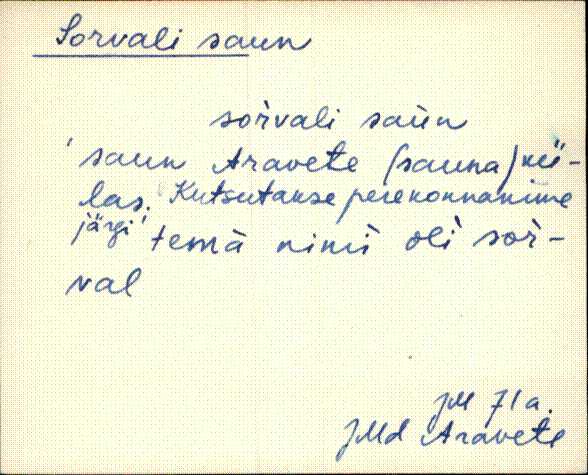 Sorvali saun
sòrvali saùn
'saun Aravete (sauna) kü-
las. Kutsutakse perekonnanime
järgi' temà nimì olì sòr-
val
JM 71a.
JMd Aravete